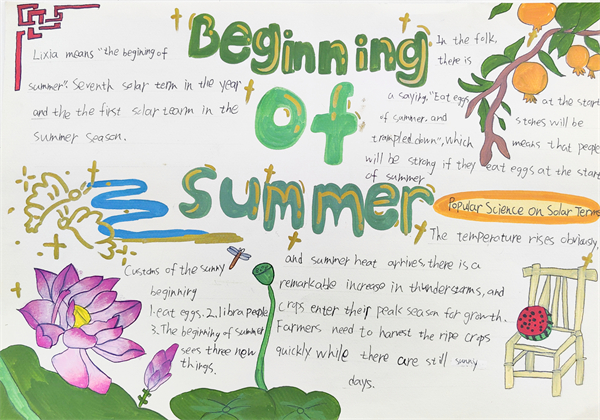 Beginning
Of
Summer
Lixia means "the begining of
summer". Seventh solar term in the year
and the the first solar tearm in the
summer season.
In the folk,
there is
a saying, "Eat eggs at the start
of summer. and stones will be
trampled down", which means that people
will be strong if they eat eggs at the start
of summer
Popular Science on Solar Terms
The temperature rises obviously,
and summer heat arrives. there is a
remarkable increase in thunderstorms, and
crops enter their peak season for growth.
Farmers need to harvest the ripe crops
quickly while there are still sunny
days.
Customs of the sunny
beginning
1.eat eggs. 2.libra people
3.The beginning of summer
sees three now
things.